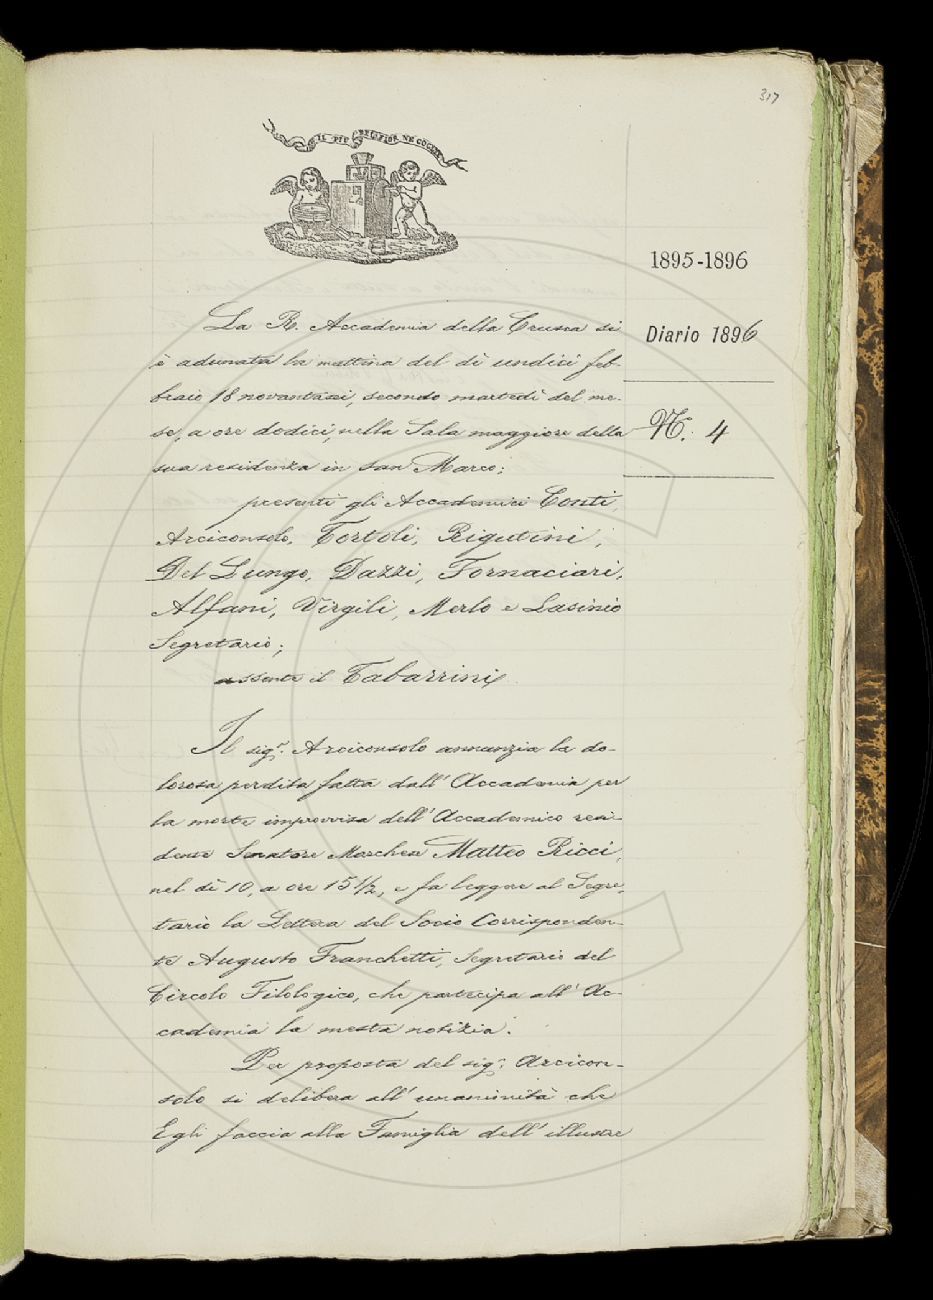 317
IL PIÙ BEL FIOR NE COGLIE
1895-1896
Diario 1896
N.º 4
La R. Accademia della Crusca si
è adunata la mattina del dì undici feb-
braio 18novantasei, secondo martedì del me-
se, a ore dodici, nella Sala maggiore della
sua residenza in San Marco;
presenti gli Accademici Conti,
Arciconsolo, Tortoli, Rigutini,
Del Lungo, Dazzi, Fornaciari,
Alfani, Virgili, Merlo e Lasinio
Segretario;
assente il Tabarrini.
Il sigr. Arciconsolo annunzia la do-
lorosa perdita fatta dall'Accademia per
la morte improvvisa dell'Accademico resi-
dente Senatore Marchese Matteo Ricci,
nel dì 10, a ore 15 1/2, e fa leggere al Segre-
tario la Lettera del Socio Corrisponden-
te Augusto Franchetti, Segretario del
Circolo Filologico, che partecipa all'Ac-
cademia la mesta notizia.
Per proposta del sigr. Arcicon-
solo si delibera all'unanimità che
Egli faccia alla Famiglia dell'illustre